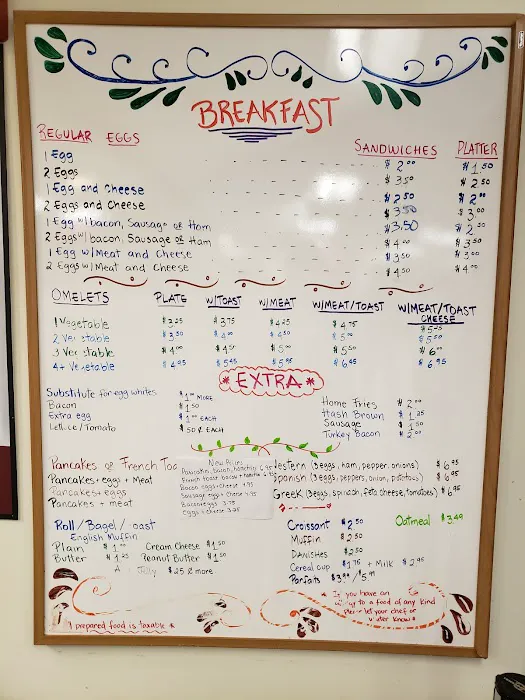 BREAKFAST
REGULAR EGGS SANDWICHES PLATTER
1 Egg $2.00 $1.50
2 Eggs $3.50 $2.50
1 Egg and Cheese $2.50 $2.00
2 Eggs and Cheese $3.50 $3.00
1 Egg w/ bacon, Sausage or Ham $3.50 $2.50
2 Eggs w/ bacon, Sausage or Ham $4.00 $3.50
1 Egg w/ Meat and Cheese $3.50 $3.00
2 Eggs w/ Meat and Cheese $4.50 $4.00
OMELETS PLATE W/TOAST W/MEAT W/MEAT/TOAST W/MEAT/TOAST CHEESE
1 Vegetable $3.25 $3.75 $4.25 $4.75 $5.25
2 Ve etable $3.50 $4.00 $4.50 $5.00 $5.50
3 Ve etable $4.00 $4.50 $5.00 $5.50 $6.00
4+ Ve etable $4.95 $5.45 $5.95 $6.45 $6.95
*EXTRA*
Substitute for egg whites $1.00 MORE
Bacon $1.50
Extra egg $1.00 EACH
Lettuce/Tomato $.50¢ EACH
Home Fries $2.00
Hash Brown $1.25
Sausage $1.50
Turkey Bacon $2.00
Pancakes or French Toa
Pancakes + eggs + Meat
Pancakes + eggs
Pancakes + meat
New Prices
Pancakes, bacon, 6.95
French toast bacon
Bacon eggs + cheese 4.95
Sausage eggs + cheese 4.95
Bacon + eggs 3.75
Eggs + cheese 3.25
Western (3 eggs, ham, pepper, onions) $6.95
Spanish (3 eggs, peppers, onion, potatoes) $6.95
Greek (3 eggs, spinach, feta cheese, tomatoes) $6.95
Roll / Bagel / oast
English Muffin
Plain $1.00 Cream Cheese $1.50
Butter $1.25 Peanut Butter $1.50
Jelly $.25¢ more
Croissant $2.50 Oatmeal $3.49
Muffin $2.50
DANISHES $2.50
Cereal cup $1.75 + Milk $2.95
Parfaits $3.99/$5.99
* If you have an
to a food of any kind
Please let your chef or
waiter know *
prepared food is taxable *